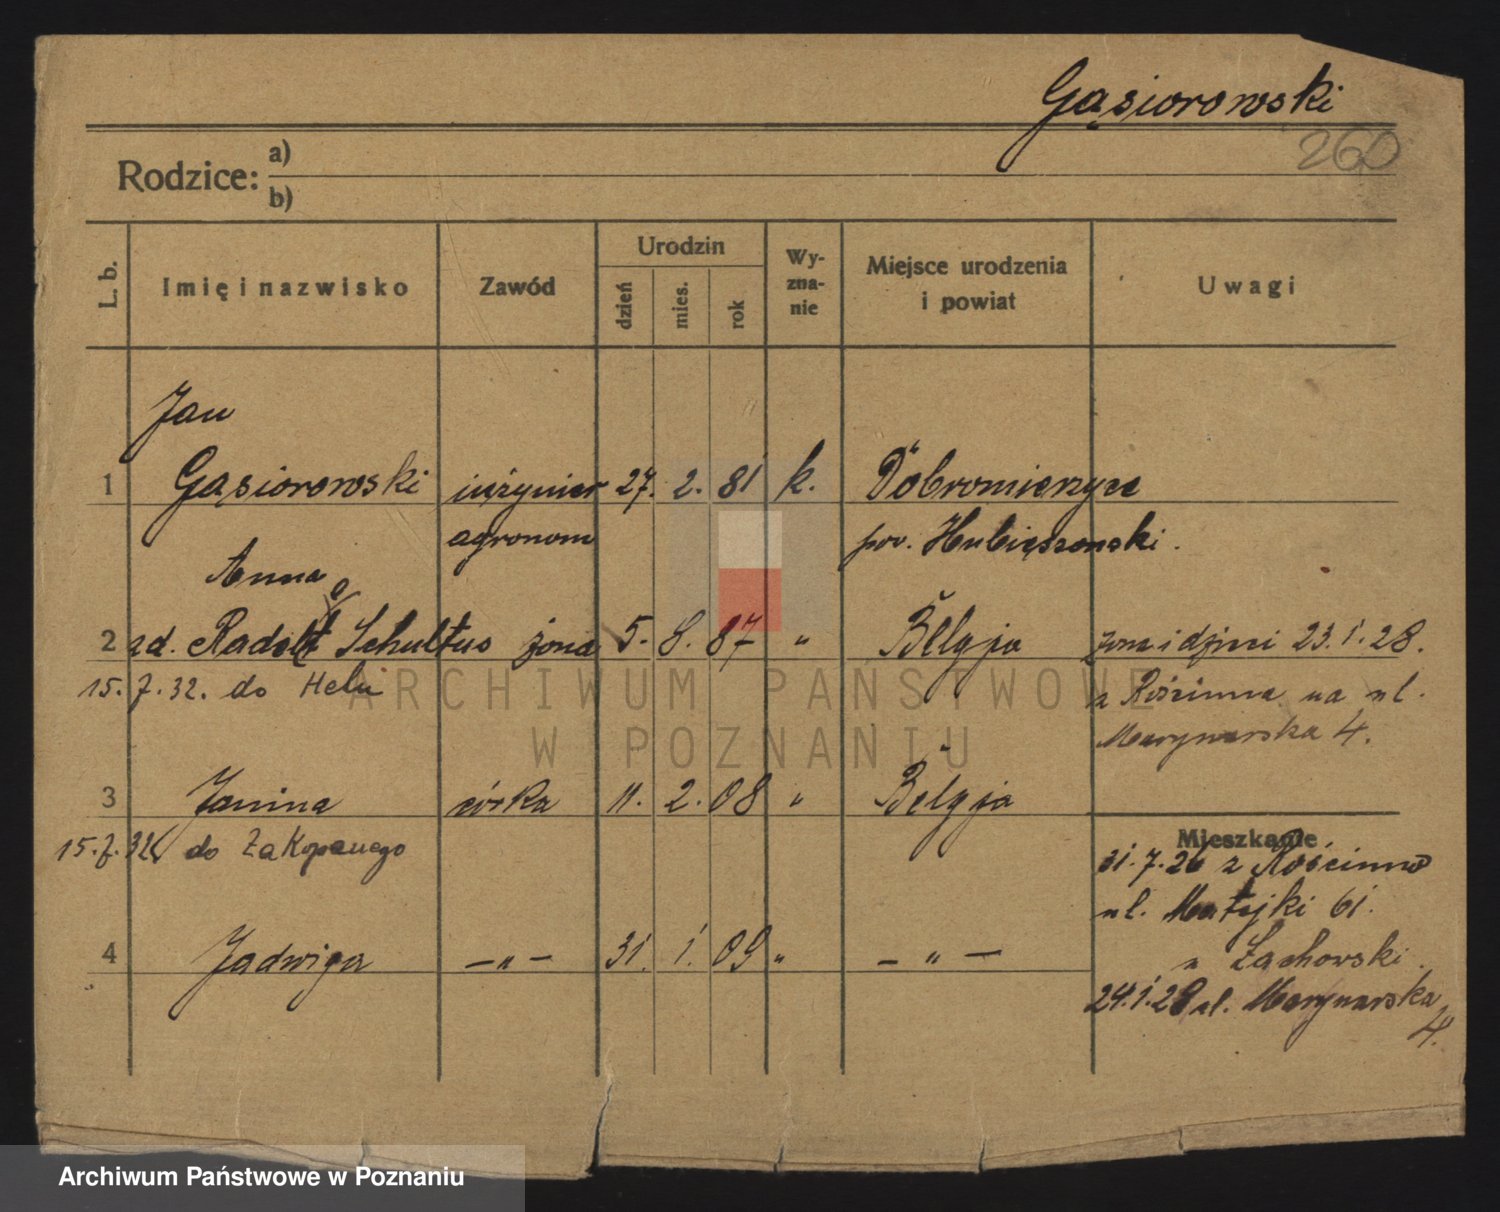 Gąsiorowski
260
Rodzice: a)
b)
L. b.
Imię i nazwisko
Zawód
Urodzin
dzień
mies.
rok
Wy-
zna-
nie
Miejsce urodzenia
i powiat
Uwagi
Jan
1 Gąsiorowski inżynier 27. 2. 81 k. Dobromierzyce
agronom pow. Hubieszowski.
Anna
2 zd. Schultus żona 5. 8. 87 " Belgja żona i dzieci 23.1.28.
15.7.32. do Helu
z Rościnna na ul.
Marynarska 4.
3 Janina córka 11. 2. 08 " Belgja
15.7.32 do Zakopanego
Mieszkanie
31.7.26 z Rościnno
ul. Matejki 61.
4 Jadwiga — " — 31. 1. 09 " — " —
u Żachowski.
24.1.28 ul. Marynarska
4.
ARCHIWUM PAŃSTWOWE
W POZNANIU
Archiwum Państwowe w Poznaniu